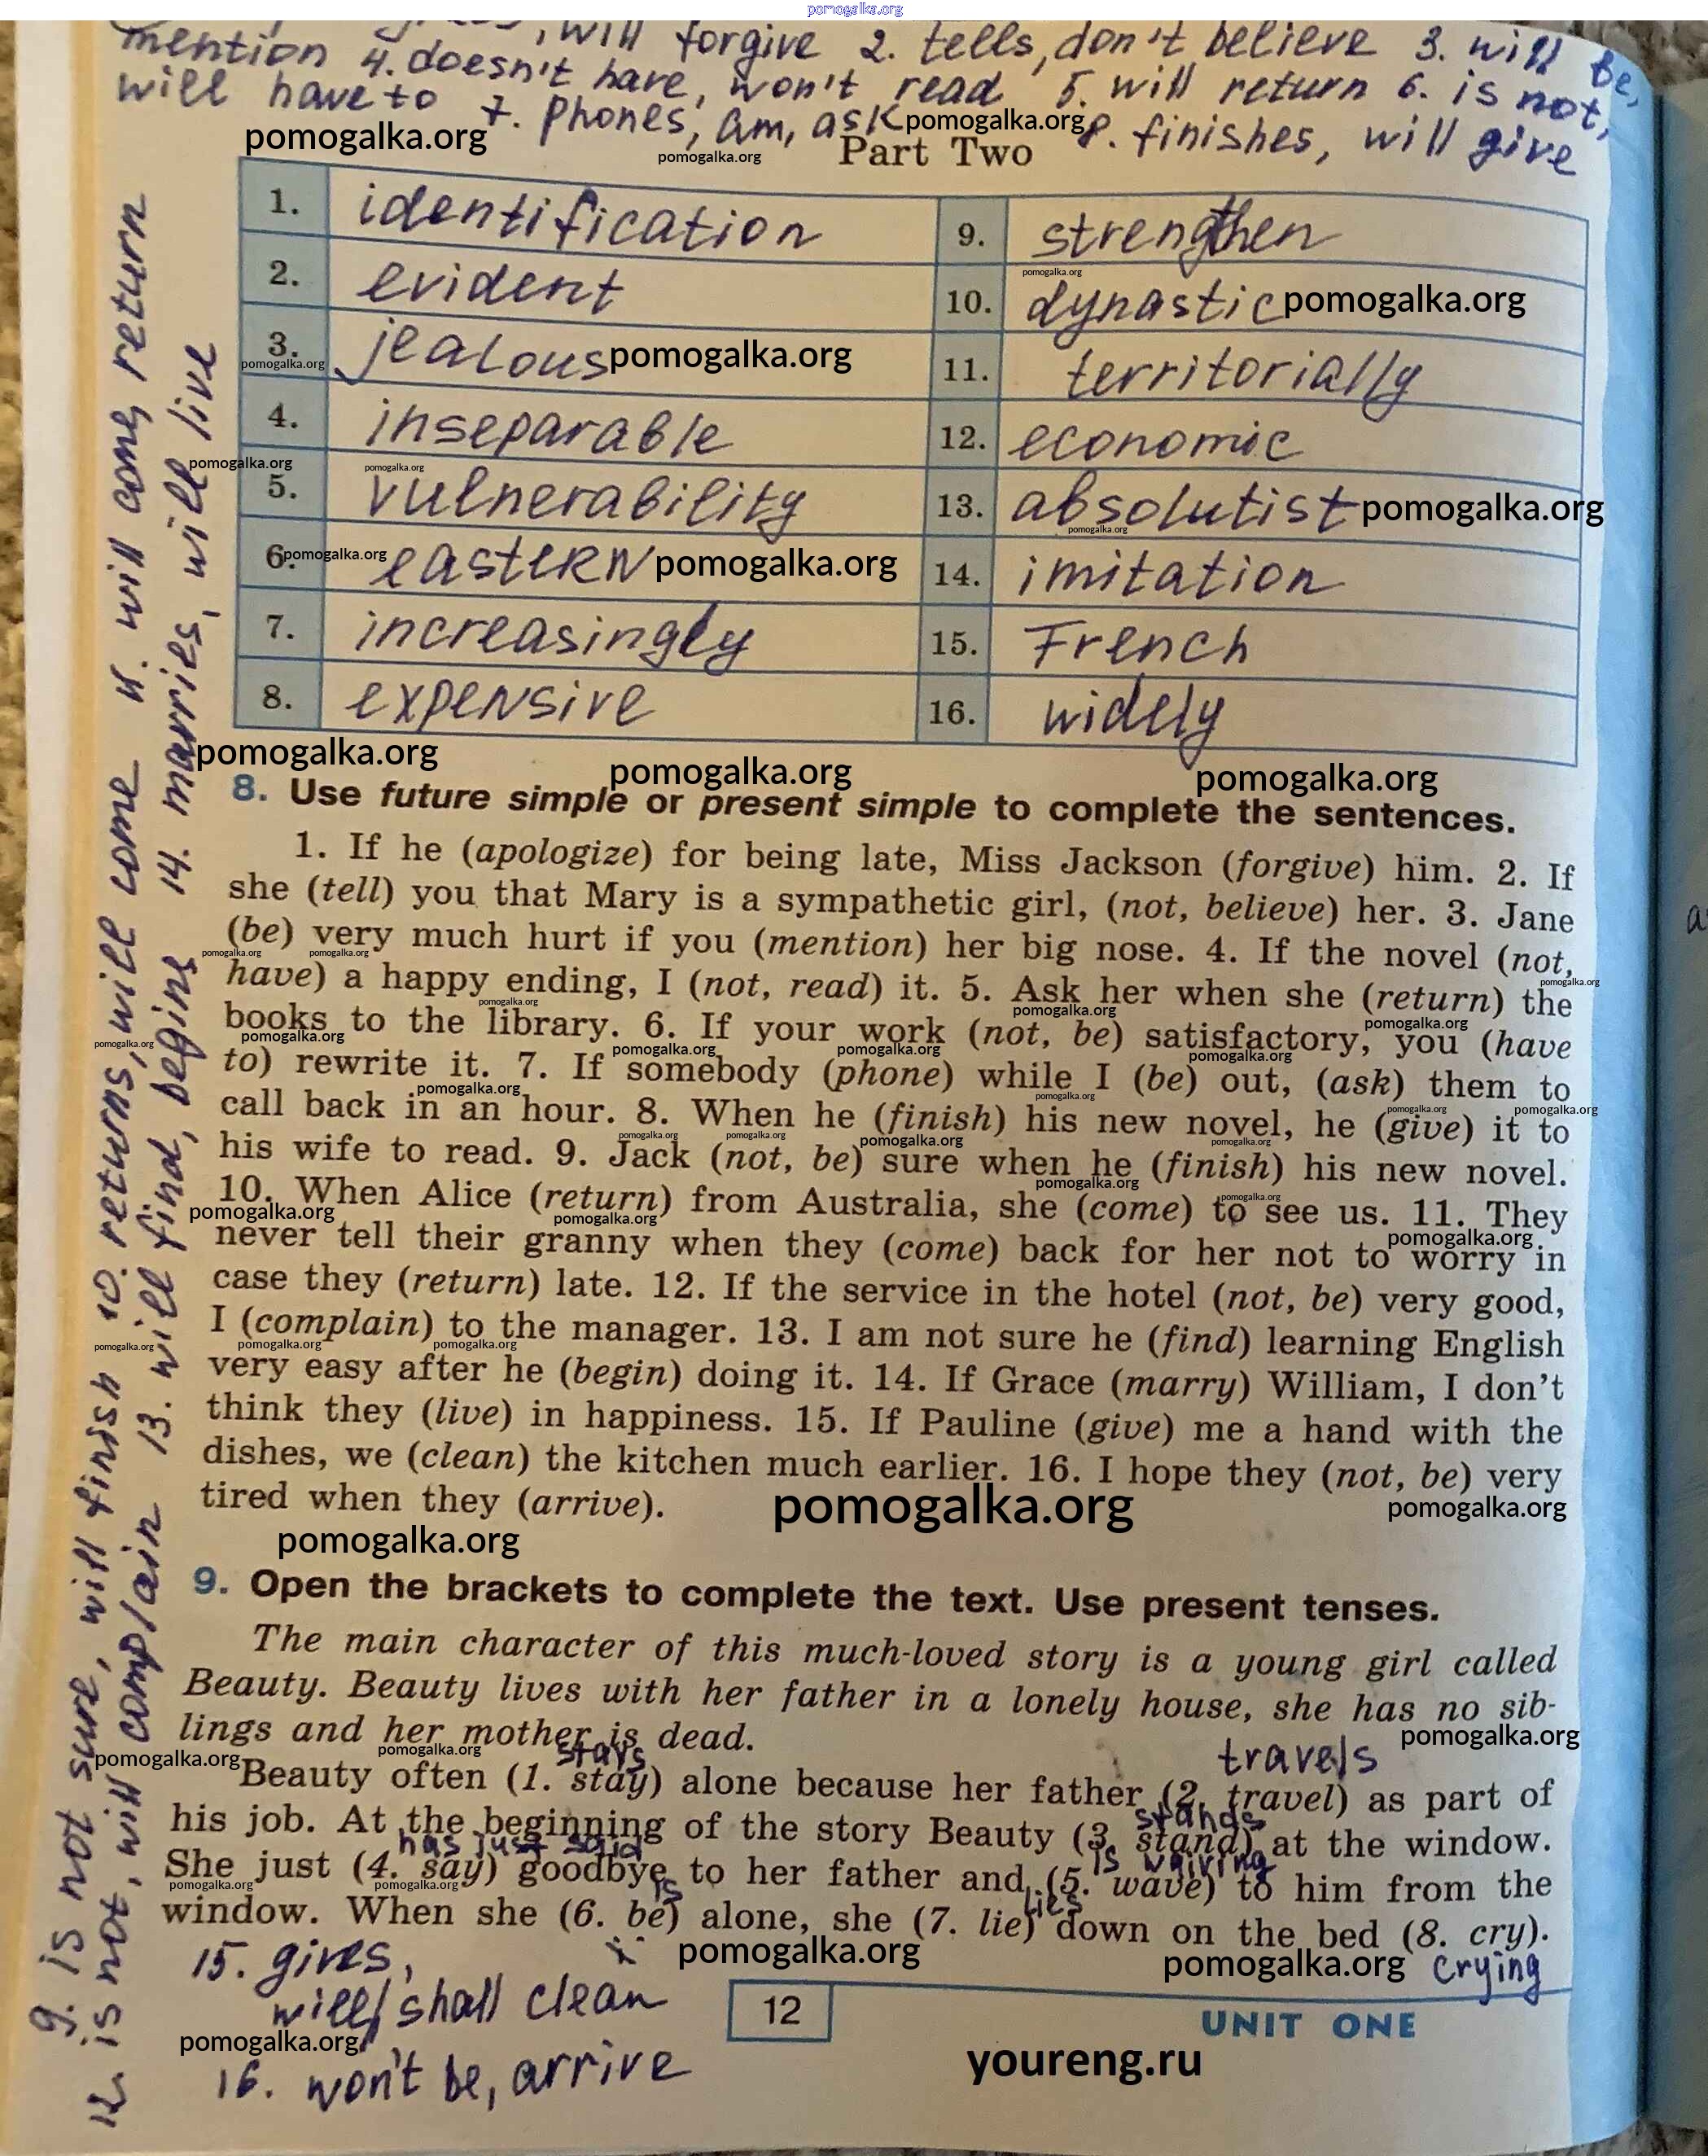 pomogalka.org
will forgive 2. tells, don't believe 3. will be,
mention 4. doesn't have, won't read 5. will return 6. is not,
will have to 7. phones, am, ask pomogalka.org 8. finishes, will give
pomogalka.org
pomogalka.org
Part Two
1. identification
2. evident
3. jealous pomogalka.org
pomogalka.org
4. inseparable
pomogalka.org
pomogalka.org
5. vulnerability
6. pomogalka.org eastern pomogalka.org
7. increasingly
8. expensive
9. strengthen
pomogalka.org
10. dynastic pomogalka.org
11. territorially
12. economic
13. absolutist pomogalka.org
pomogalka.org
14. imitation
15. French
16. widely
pomogalka.org
pomogalka.org
pomogalka.org
8. Use future simple or present simple to complete the sentences.
1. If he (apologize) for being late, Miss Jackson (forgive) him. 2. If
she (tell) you that Mary is a sympathetic girl, (not, believe) her. 3. Jane
(be) very much hurt if you (mention) her big nose. 4. If the novel (not,
pomogalka.org pomogalka.org
have) a happy ending, I (not, read) it. 5. Ask her when she (return) the
pomogalka.org pomogalka.org pomogalka.org
books to the library. 6. If your work (not, be) satisfactory, you (have
pomogalka.org pomogalka.org pomogalka.org pomogalka.org pomogalka.org pomogalka.org
to) rewrite it. 7. If somebody (phone) while I (be) out, (ask) them to
pomogalka.org pomogalka.org pomogalka.org pomogalka.org
call back in an hour. 8. When he (finish) his new novel, he (give) it to
pomogalka.org pomogalka.org pomogalka.org pomogalka.org
his wife to read. 9. Jack (not, be) sure when he (finish) his new novel.
pomogalka.org pomogalka.org
10. When Alice (return) from Australia, she (come) to see us. 11. They
pomogalka.org pomogalka.org pomogalka.org
never tell their granny when they (come) back for her not to worry in
case they (return) late. 12. If the service in the hotel (not, be) very good,
I (complain) to the manager. 13. I am not sure he (find) learning English
pomogalka.org pomogalka.org pomogalka.org
very easy after he (begin) doing it. 14. If Grace (marry) William, I don't
think they (live) in happiness. 15. If Pauline (give) me a hand with the
dishes, we (clean) the kitchen much earlier. 16. I hope they (not, be) very
tired when they (arrive).
pomogalka.org pomogalka.org
pomogalka.org
9. Open the brackets to complete the text. Use present tenses.
The main character of this much-loved story is a young girl called
Beauty. Beauty lives with her father in a lonely house, she has no sib-
lings and her mother is dead.
pomogalka.org pomogalka.org pomogalka.org
stays travels
Beauty often (1. stay) alone because her father (2. travel) as part of
stands
his job. At the beginning of the story Beauty (3. stand) at the window.
has just said is waiving
She just (4. say) goodbye to her father and (5. wave) to him from the
pomogalka.org pomogalka.org
is lies
window. When she (6. be) alone, she (7. lie) down on the bed (8. cry).
pomogalka.org pomogalka.org crying
15. gives,
will/shall clean
pomogalka.org
16. won't be, arrive
12
UNIT ONE
youreng.ru
9. is not sure, will finish 10. returns, will come 11. will come, return
12. is not, will complain 13. will find, begins 14. marries, will live